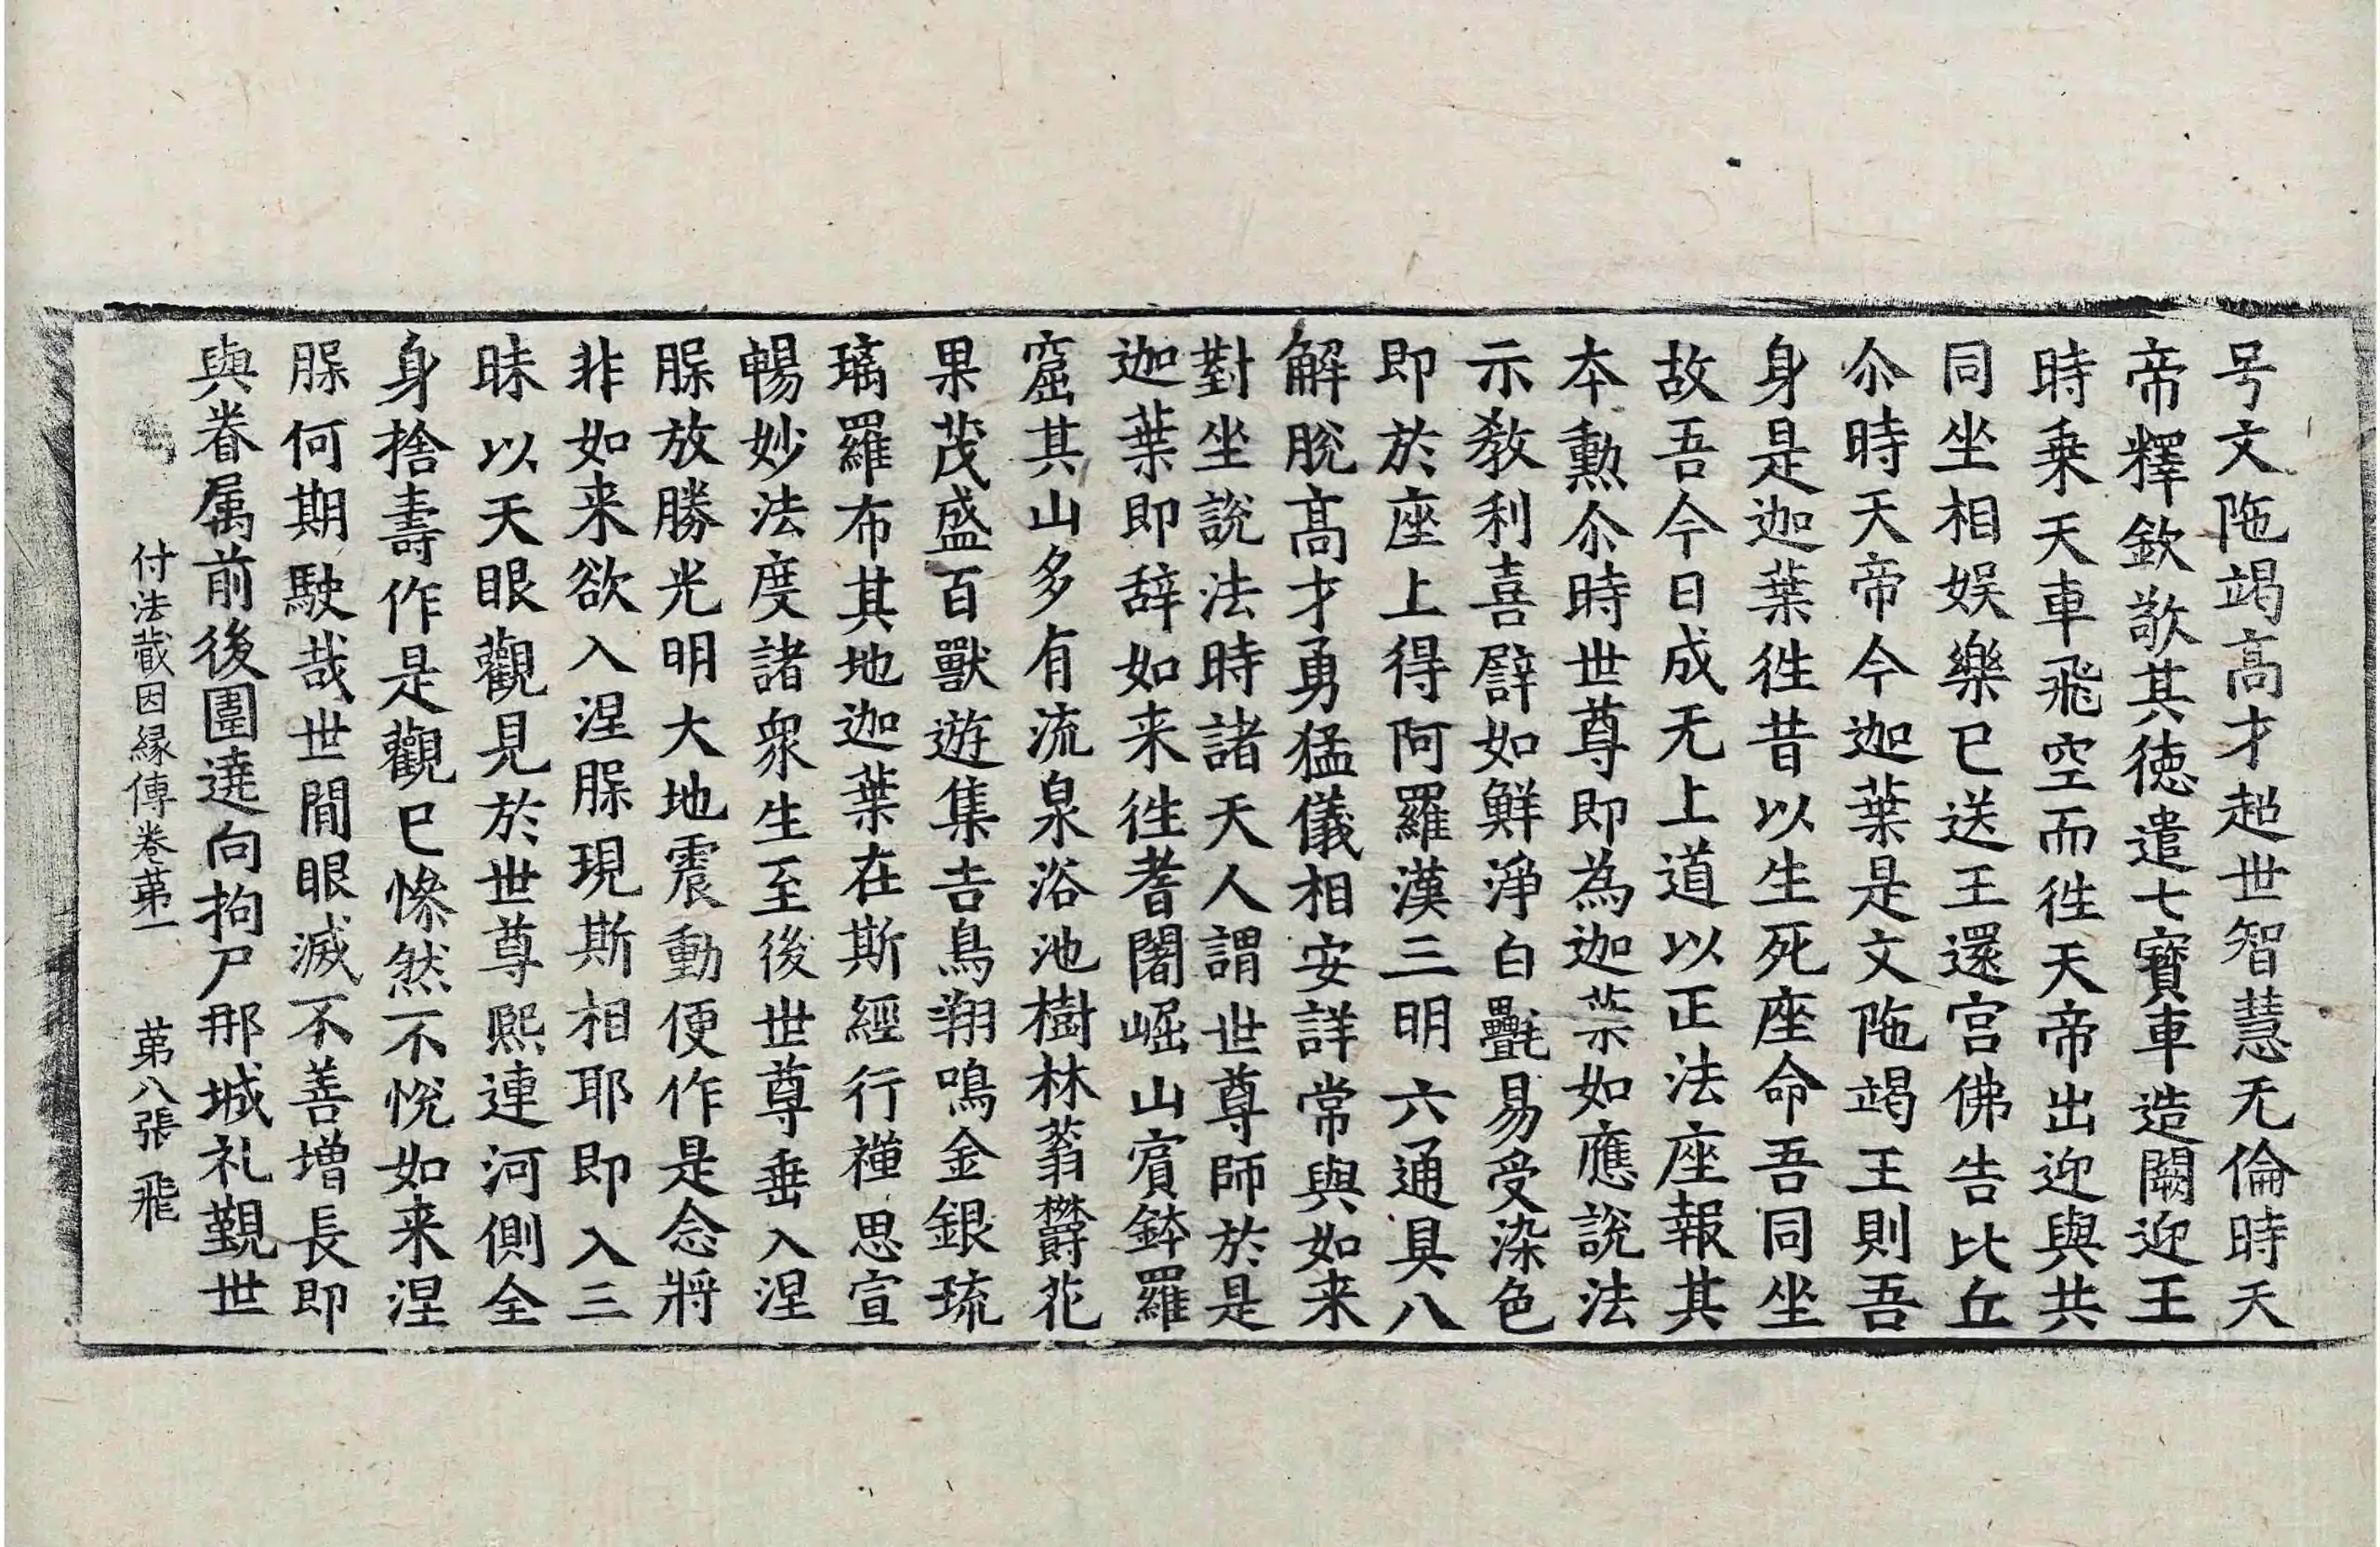 号文陁竭高才超世智慧无倫時天
帝釋欽敬其徳遣七寳車造闕迎王
時乗天車飛空而徃天帝出迎與共
同坐相娛樂已送王還宫佛告比丘
尒時天帝今迦葉是文陁竭王則吾
身是迦葉徃昔以生死座命吾同坐
故吾今日成无上道以正法座報其
本勲尒時世尊即為迦葉如應說法
示教利喜譬如鮮淨白㲲易受染色
即於座上得阿羅漢三明六通具八
解脫髙才勇猛儀相安詳常與如来
對坐說法時諸天人謂世尊師於是
迦葉即辞如来徃耆闍崛山賔鉢羅
窟其山多有流泉浴池樹林蓊欝花
果茂盛百獸遊集吉鳥翔鳴金銀琉
璃羅布其地迦葉在斯經行禪思宣
暢妙法度諸衆生至後世尊垂入涅
腂放勝光明大地震動便作是念將
非如来欲入涅腂現斯相耶即入三
昧以天眼觀見於世尊熈連河側全
身捨壽作是觀已慘然不悅如来涅
腂何期駛哉世間眼滅不善増長即
與眷属前後圍遶向拘尸那城礼覲世
付法藏因縁傳卷苐一 苐八張 飛